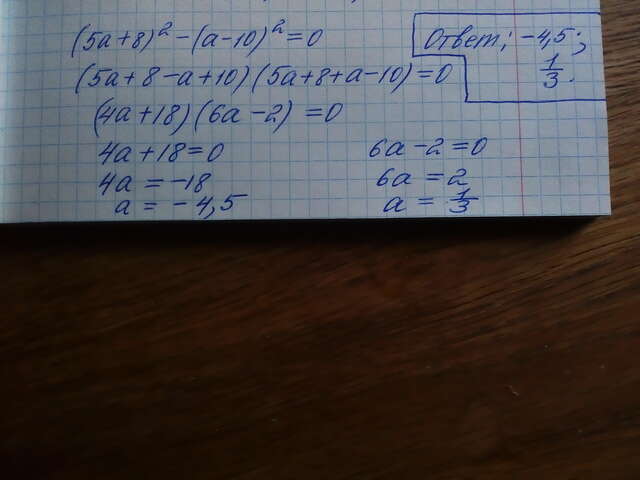 (5a+8)² - (a-10)² = 0
(5a+8-a+10)(5a+8+a-10)=0
(4a+18)(6a-2) = 0
4a+18=0
4a = -18
a = -4,5
6a-2=0
6a = 2
a = 1/3
Ответ: -4,5;
1/3.